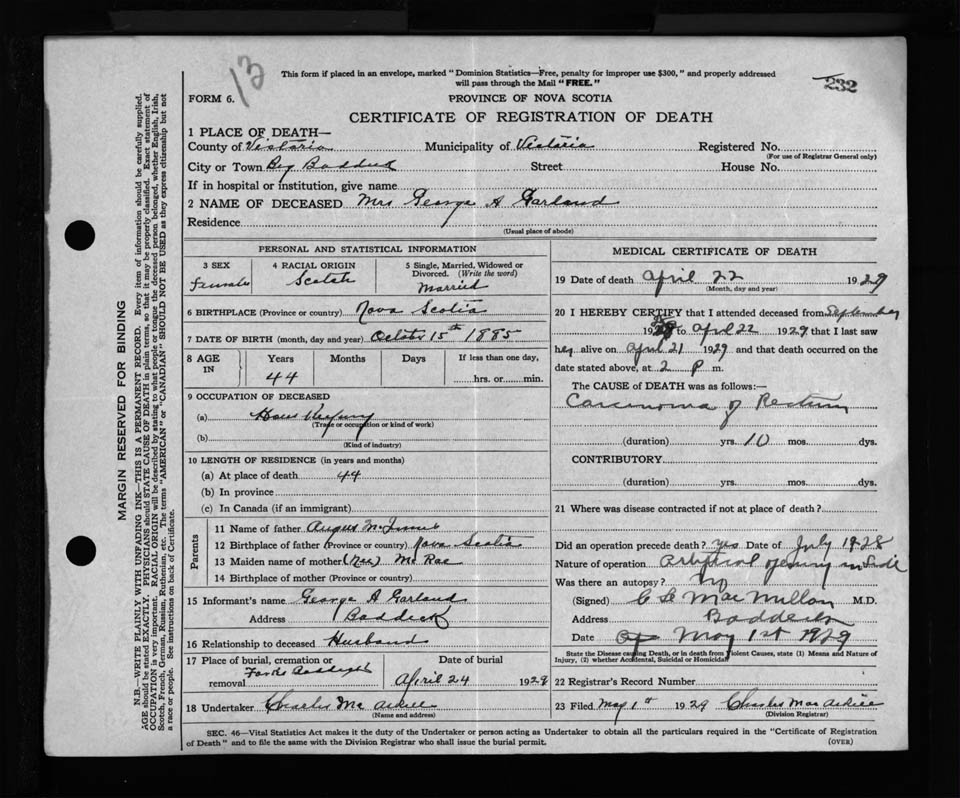 13
232
This form if placed in an envelope, marked "Dominion Statistics—Free, penalty for improper use $300," and properly addressed
will pass through the Mail "FREE."
FORM 6.
PROVINCE OF NOVA SCOTIA
CERTIFICATE OF REGISTRATION OF DEATH
1 PLACE OF DEATH—
County of Victoria Municipality of Victoria Registered No.
(For use of Registrar General only)
City or Town Big Baddeck Street House No.
If in hospital or institution, give name
2 NAME OF DECEASED Mrs George A Garland
Residence
(Usual place of abode)
PERSONAL AND STATISTICAL INFORMATION
3 SEX
Female
4 RACIAL ORIGIN
Scotch
5 Single, Married, Widowed or
Divorced. (Write the word)
Married
6 BIRTHPLACE (Province or country) Nova Scotia
7 DATE OF BIRTH (month, day and year) October 15th 1885
8 AGE
IN
Years
44
Months
Days
If less than one day,
hrs. or min.
9 OCCUPATION OF DECEASED
(a) House Keeping
(Trade or occupation or kind of work)
(b)
(Kind of industry)
10 LENGTH OF RESIDENCE (in years and months)
(a) At place of death 44
(b) In province
(c) In Canada (if an immigrant)
Parents
11 Name of father Angus McInnis
12 Birthplace of father (Province or country) Nova Scotia
13 Maiden name of mother (Nee) McRae
14 Birthplace of mother (Province or country)
15 Informant's name George A Garland
Address Baddeck
16 Relationship to deceased Husband
17 Place of burial, cremation or
removal Forks Baddeck
Date of burial
April 24 1929
18 Undertaker Charles Mc Askill
(Name and address)
MEDICAL CERTIFICATE OF DEATH
19 Date of death April 22 1929
(Month, day and year)
20 I HEREBY CERTIFY that I attended deceased from September
1928 to April 22 1929 that I last saw
her alive on April 21 1929 and that death occurred on the
date stated above, at 2 P m.
The CAUSE of DEATH was as follows:—
Carcinoma of Rectum
(duration) yrs. 10 mos. dys.
CONTRIBUTORY
(duration) yrs. mos. dys.
21 Where was disease contracted if not at place of death?
Did an operation precede death? Yes Date of July 1928
Nature of operation Artificial opening in side
Was there an autopsy? No
(Signed) C L MacMillan M.D.
Address Baddeck
Date May 1st 1929
State the Disease causing Death, or in death from Violent Causes, state (1) Means and Nature of
Injury, (2) whether Accidental, Suicidal or Homicidal
22 Registrar's Record Number
23 Filed May 1st 1929 Charles MacAskill
(Division Registrar)
SEC. 46—Vital Statistics Act makes it the duty of the Undertaker or person acting as Undertaker to obtain all the particulars required in the "Certificate of Registration
of Death" and to file the same with the Division Registrar who shall issue the burial permit.
(OVER)
MARGIN RESERVED FOR BINDING
N.B.—WRITE PLAINLY WITH UNFADING INK—THIS IS A PERMANENT RECORD. Every item of information should be carefully supplied.
AGE should be stated EXACTLY. PHYSICIANS should STATE CAUSE OF DEATH in plain terms, so that it may be properly classified. Exact statement of
OCCUPATION is very important. RACIAL ORIGIN will be described by stating to what people or tongue the deceased person belonged, whether English, Irish,
Scotch, French, German, Russian, Ruthenian, etc. The terms "AMERICAN" or "CANADIAN" SHOULD NOT BE USED as they express citizenship but not
a race or people. See instructions on back of Certificate.